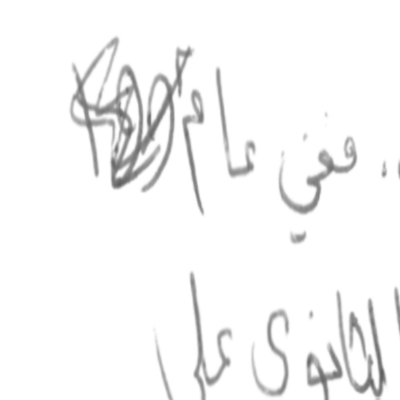 ، ففي عام
الثانوي على